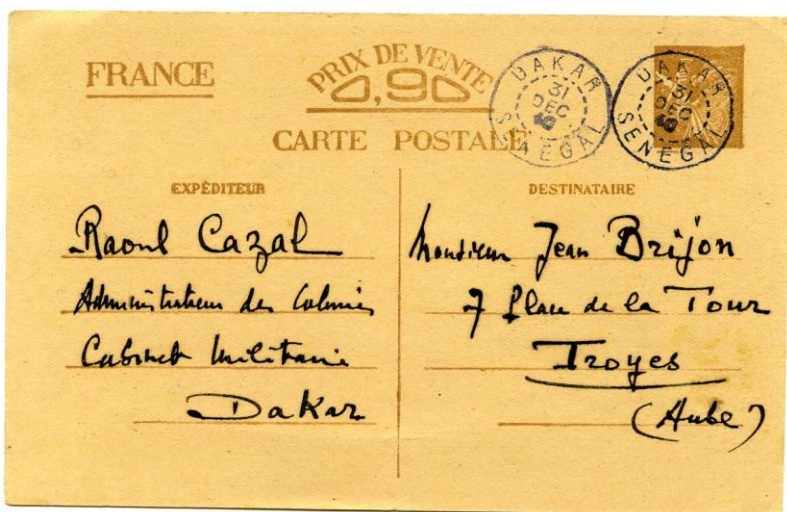 FRANCE
PRIX DE VENTE
0,90
CARTE POSTALE
DAKAR
31
DEC
SENEGAL
DAKAR
31
DEC
SENEGAL
EXPÉDITEUR
Raoul Cazal
Administrateur des Colonies
Cabinet Militaire
Dakar
DESTINATAIRE
Monsieur Jean Brijon
7 Place de la Tour
Troyes
(Aube)